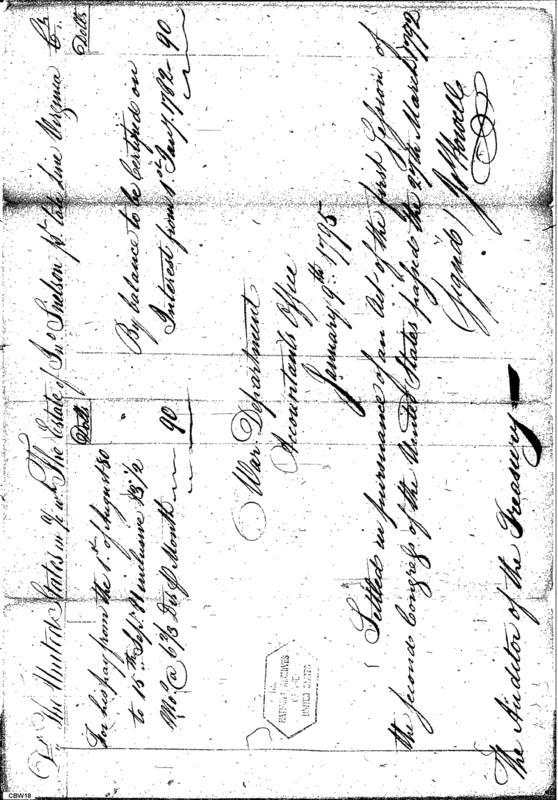 Dr. The United States in a/c with The Estate of Jno Snelson pt. late Line Virginia Cr.
Dolls
For his pay from the 1st. of August 80
to 15th Sept. 81 inclusive 13 1/2
Mos. @ 6 2/3 Drs. p Month
90
Dolls
By balance to be Certified on
Interest from 1st Jany 1782 - 90
War Department
Accountants Office
January 9th 1795
Settled in pursuance of an Act of the first Session of
the second Congress of the United States passed the 27th March 1792
(Signed) Jos Howell
The Auditor of the Treasury
THE
NATIONAL ARCHIVES
OF THE
UNITED STATES
CBW18